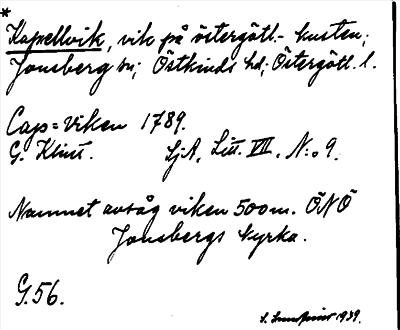 *
Kapellvik, vik på östergötl.- kusten;
Jonsberg sn; Östkinds hd; Östergötl. l.
Cap=Viken 1789.
G. Klint. SjA, Litt. VII, N:o 9.
Namnet avsåg viken 500 m. ÖNÖ
Jonsbergs kyrka.
G.56.
1939.